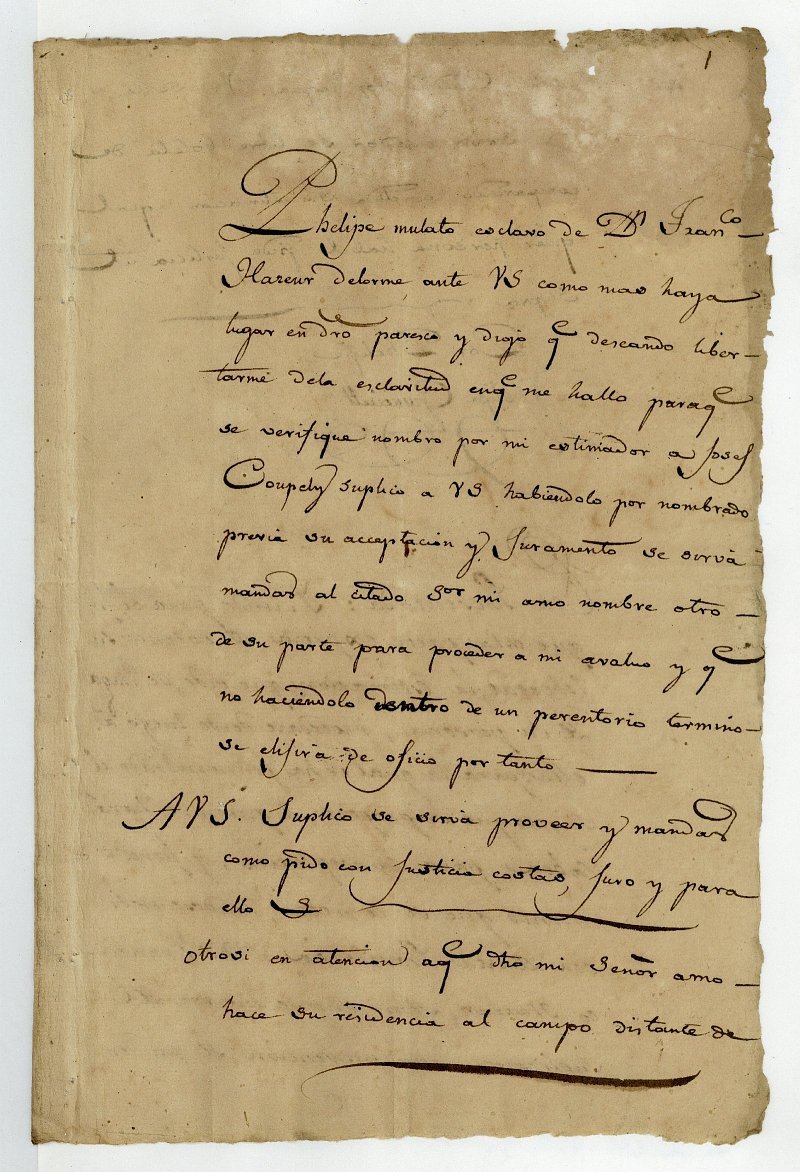 1
Phelipe mulato esclavo de Dn. Franco
Hazeur delorme, ante VS como mas haya
lugar en dro paresco y diojo q deseando liber-
tarme dela esclavitud enq me hallo paraq
se verifique nombro por mi estimador a Josef
Coupely suplico a VS habiendolo por nombrado
previa su acceptacion y Juramento se sirva
mandar al citado Sor mi amo nombre otro
de su parte prara proceder a mi avaluo y q
no haciendolo dentro de un perentorio termino
se elijira de oficio por tanto
A VS. Suplico se sirva proveer y mandar
como pido con Justicia costas, Juro y para
ello S
otrosi en atencion aq dho mi Señor amo
hace su residencia al campo distante de